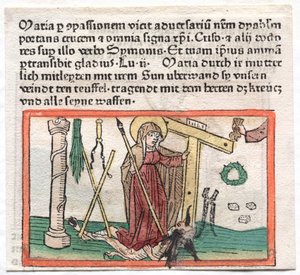 Maria p ɔpassionem vicit aduersariũ nr̃m dyabl̃m
portans crucem et omnia signa xp̃i. Criso. & alij docto
res sup illo verbo Symonis. Et tuam ip̃ius animam
ptransibit gladius. Lu. ij. Maria durch ir mutter
lich mitleyten mit irem Sun uberwand sy unsern
veindt den teuffel. tragendt mit dem herten dz kreucz
und alle seyne waffen.